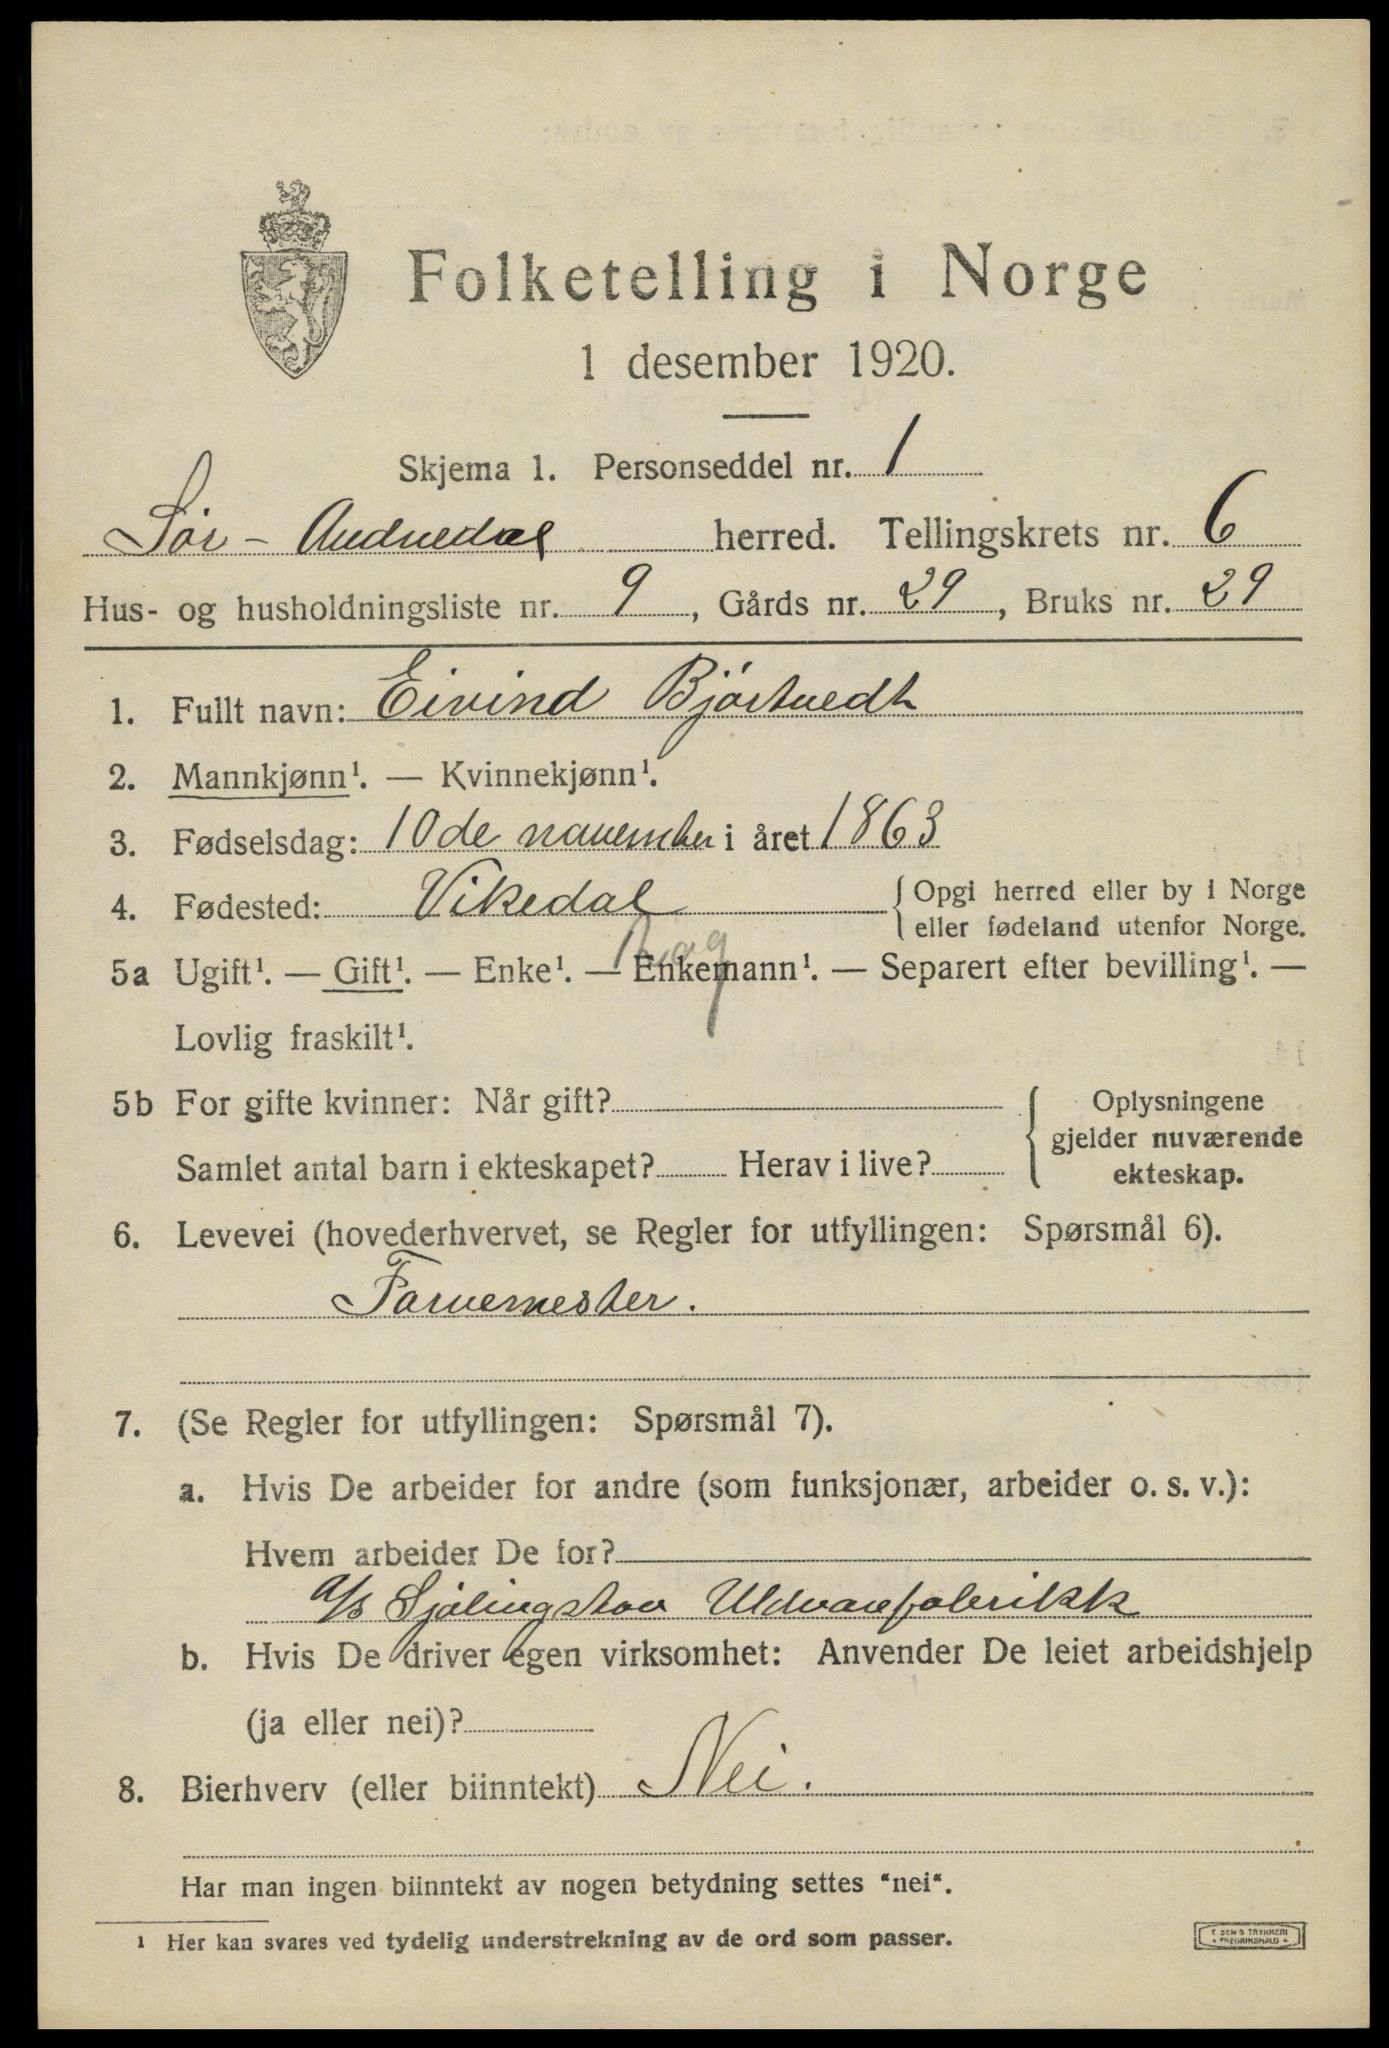 Folketelling i Norge
1 desember 1920.
Skjema 1. Personseddel nr. 1
Sør - Audnedal herred. Tellingskrets nr. 6
Hus- og husholdningsliste nr. 9, Gårds nr. 29, Bruks nr. 29
1. Fullt navn: Eivind Bjørtvedt
2. Mannkjønn¹. — Kvinnekjønn¹.
3. Fødselsdag: 10de november i året 1863
4. Fødested: Vikedal { Opgi herred eller by i Norge
eller fødeland utenfor Norge.
Rog
5a Ugift¹. — Gift¹. — Enke¹. — Enkemann¹. — Separert efter bevilling¹. —
Lovlig fraskilt¹.
5b For gifte kvinner: Når gift? { Oplysningene
gjelder nuværende
Samlet antal barn i ekteskapet? Herav i live? ekteskap.
6. Levevei (hovederhvervet, se Regler for utfyllingen: Spørsmål 6).
Farvemester.
7. (Se Regler for utfyllingen: Spørsmål 7).
a. Hvis De arbeider for andre (som funksjonær, arbeider o. s. v.):
Hvem arbeider De for?
a/s Sjølingstad Uldvarefabrikk
b. Hvis De driver egen virksomhet: Anvender De leiet arbeidshjelp
(ja eller nei)?
8. Bierhverv (eller biinntekt) Nei.
Har man ingen biinntekt av nogen betydning settes "nei".
¹ Her kan svares ved tydelig understrekning av de ord som passer.
TRYKKERI
FREDRIKSHALD